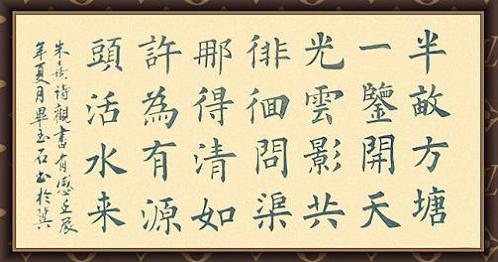 半畝方塘
一鑒開天
光雲影共
徘徊問渠
那得清如
許為有源
頭活水来
朱熹詩觀書有感壬辰
年夏月畢玉石书於冀